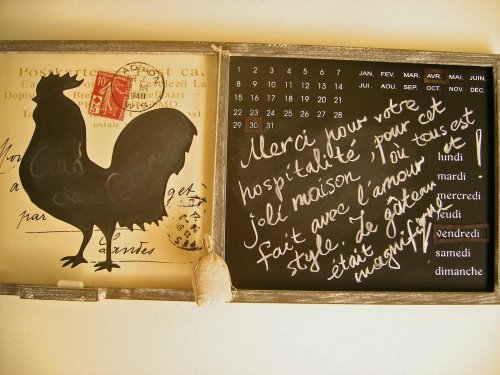 Postkarte Post ca
1 2 3 4 5 6 7
8 9 10 11 12 13 14
15 16 17 18 19 20 21
22 23 24 25 26 27 28
29 30 31
JAN. FEV. MAR. AVR. MAI. JUIN.
JUI. AOU. SEP. OCT. NOV. DEC.
Merci pour votre
hospitalité, pour cet
joli maison, où tous est
fait avec l'amour et
style. Le gâteau
était
magnifique!
lundi
mardi
mercredi
jeudi
vendredi
samedi
dimanche
par
Landes